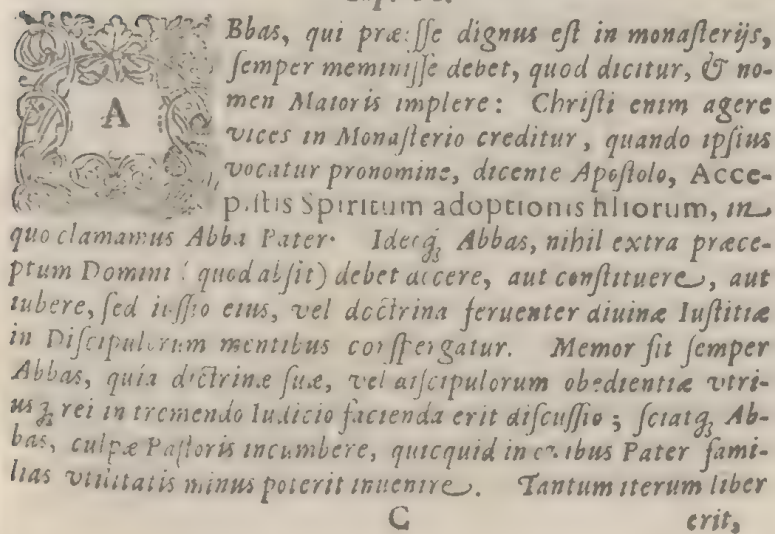 ABbas, qui præesse dignus est in monasterijs,
semper meminisse debet, quod dicitur, & no-
men Maioris implere: Christi enim agere
vices in Monasterio creditur, quando ipsius
vocatur pronomine, dicente Apostolo, Acce-
pistis Spiritum adoptionis filiorum, in
quo clamamus Abba Pater. Ideoq́ꝫ Abbas, nihil extra præce-
ptum Domini (quod absit) debet docere, aut constituere, aut
iubere, sed iussio eius, vel doctrina feruenter diuinæ Iustitiæ
in Discipulorum mentibus conspergatur. Memor sit semper
Abbas, quia doctrinæ suæ, vel discipulorum obedientiæ vtri-
usqꝫ rei in tremendo Iudicio facienda erit discussio; sciatq́ꝫ Ab-
bas, culpæ Pastoris incumbere, quicquid in ouibus Pater fami-
lias vtilitatis minus poterit inuenire. Tantum iterum liber
C erit,